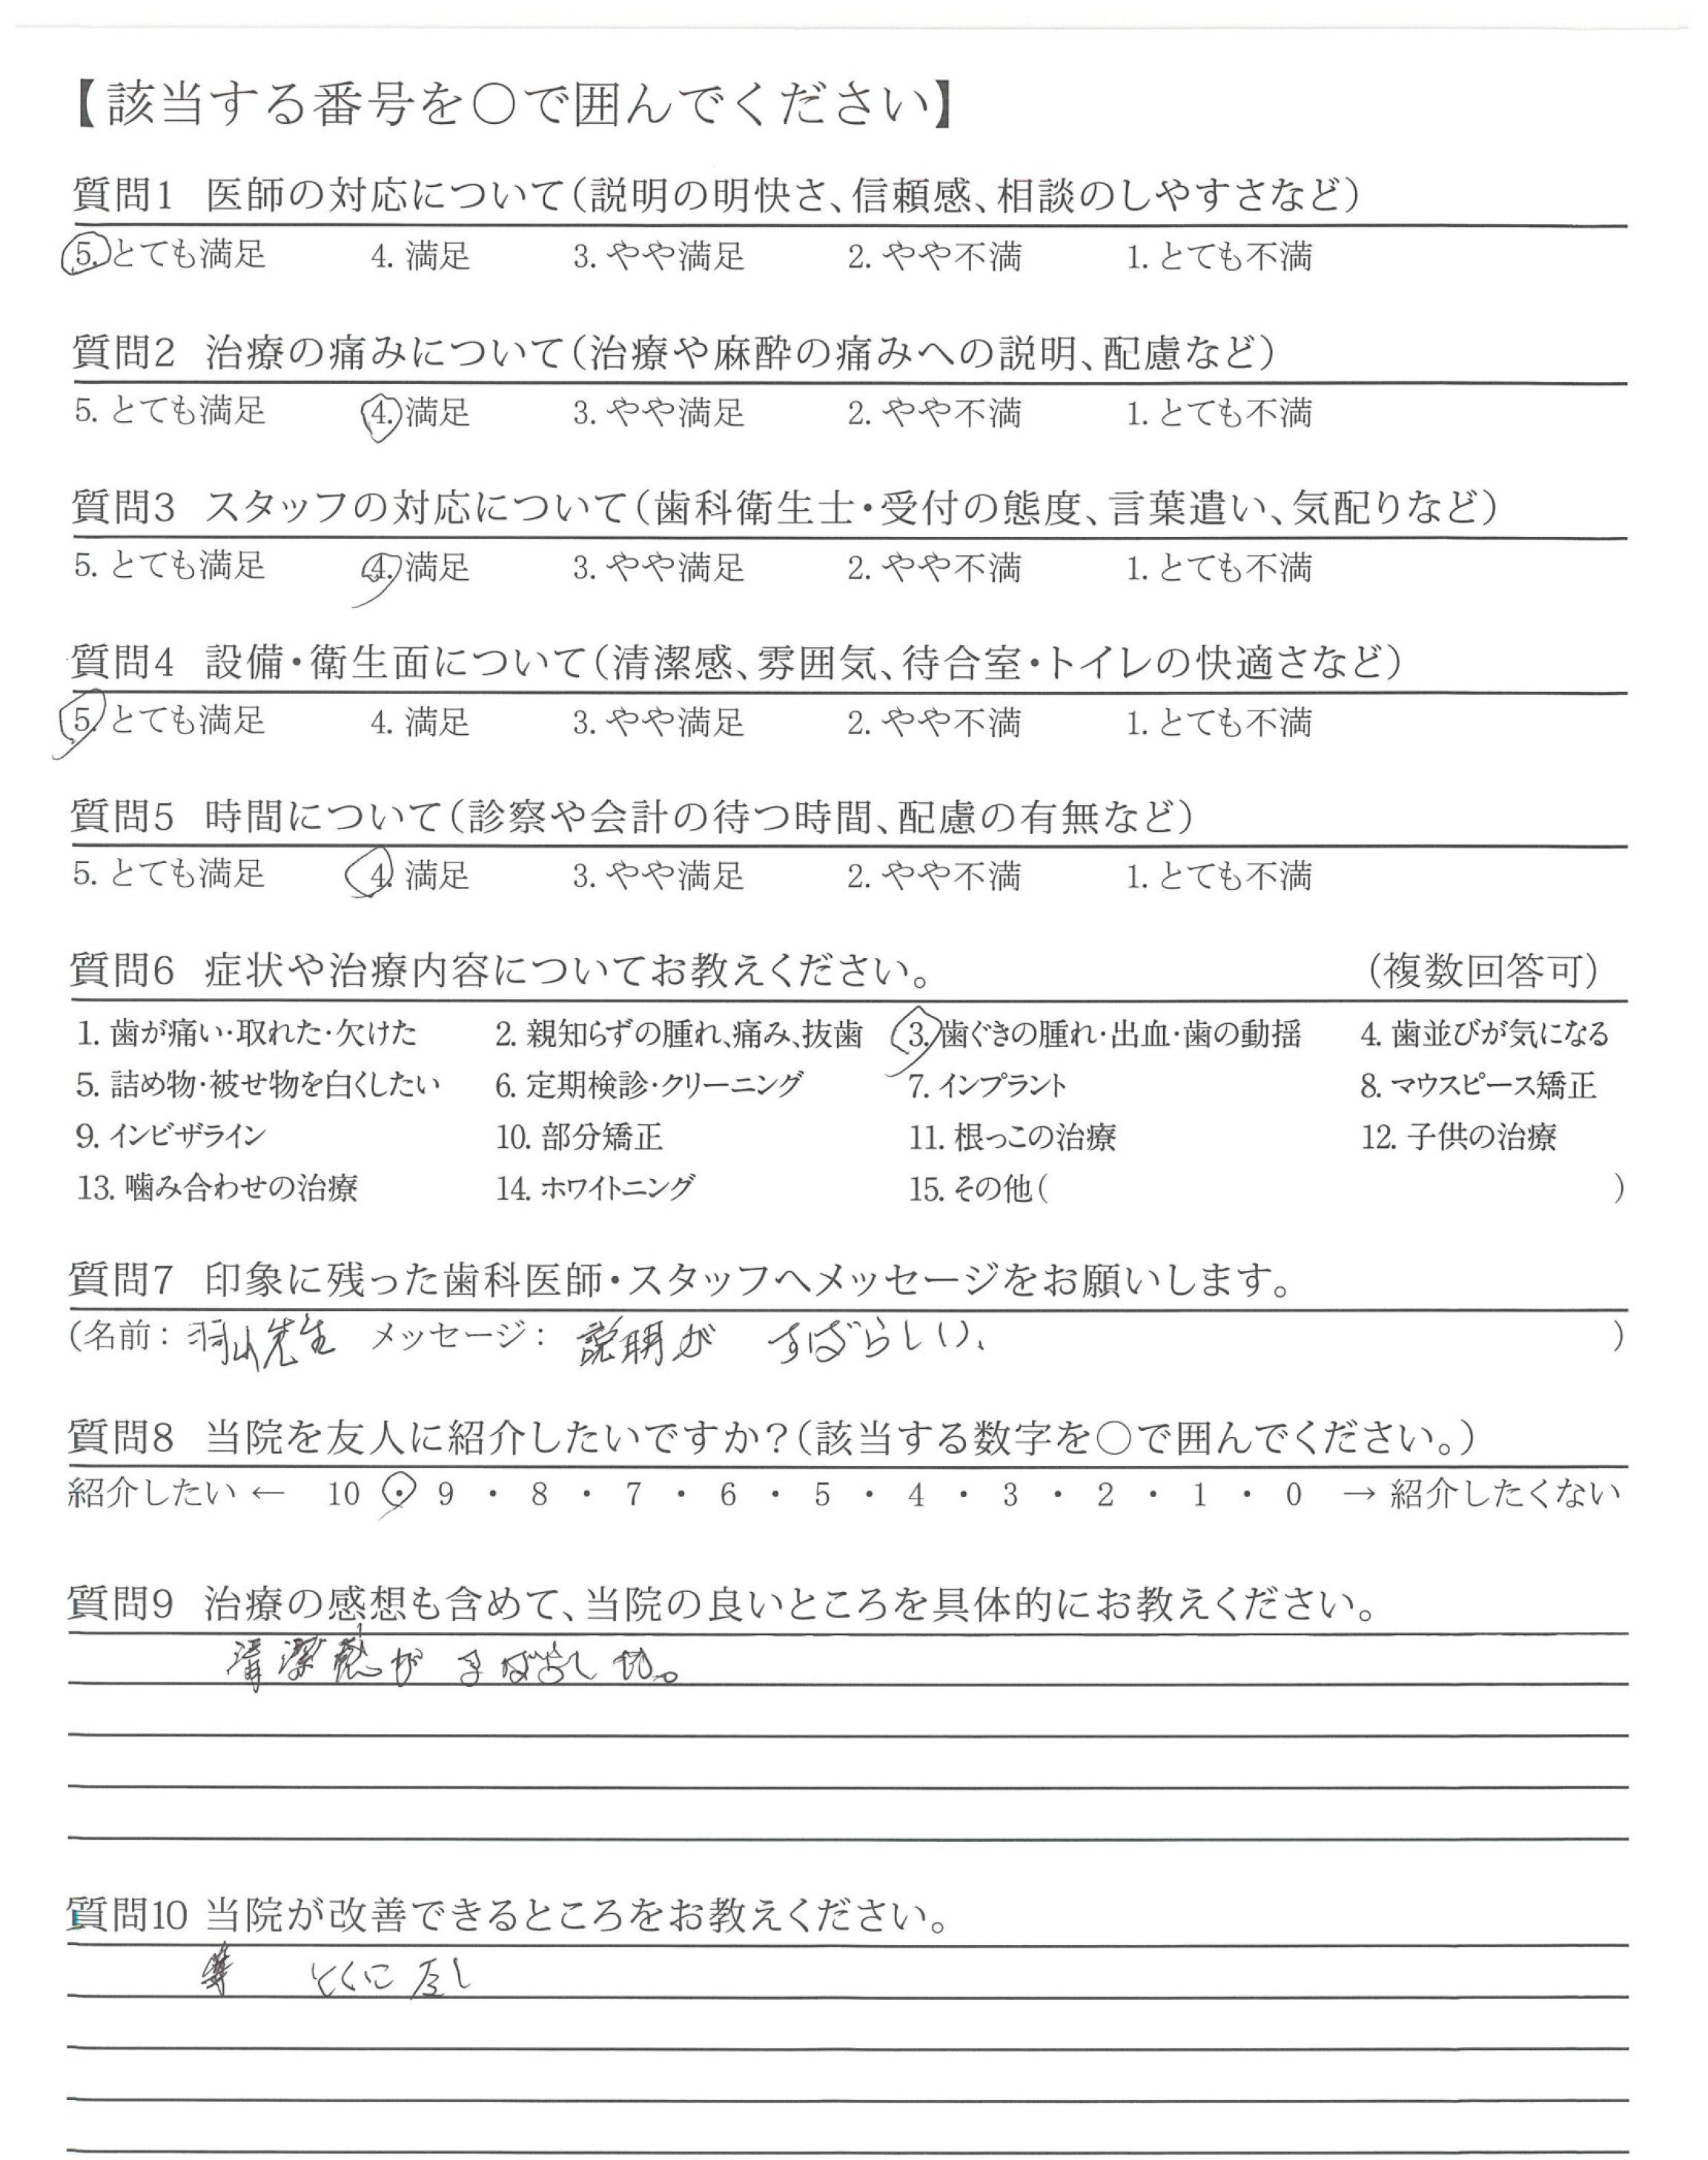 【該当する番号を○で囲んでください】
質問1 医師の対応について(説明の明快さ、信頼感、相談のしやすさなど)
5. とても満足 4. 満足 3. やや満足 2. やや不満 1. とても不満
質問2 治療の痛みについて(治療や麻酔の痛みへの説明、配慮など)
5. とても満足 4. 満足 3. やや満足 2. やや不満 1. とても不満
質問3 スタッフの対応について(歯科衛生士・受付の態度、言葉遣い、気配りなど)
5. とても満足 4. 満足 3. やや満足 2. やや不満 1. とても不満
質問4 設備・衛生面について(清潔感、雰囲気、待合室・トイレの快適さなど)
5. とても満足 4. 満足 3. やや満足 2. やや不満 1. とても不満
質問5 時間について(診察や会計の待つ時間、配慮の有無など)
5. とても満足 4. 満足 3. やや満足 2. やや不満 1. とても不満
質問6 症状や治療内容についてお教えください。 (複数回答可)
1. 歯が痛い・取れた・欠けた 2. 親知らずの腫れ、痛み、抜歯 3. 歯ぐきの腫れ・出血・歯の動揺 4. 歯並びが気になる
5. 詰め物・被せ物を白くしたい 6. 定期検診・クリーニング 7. インプラント 8. マウスピース矯正
9. インビザライン 10. 部分矯正 11. 根っこの治療 12. 子供の治療
13. 噛み合わせの治療 14. ホワイトニング 15. その他( )
質問7 印象に残った歯科医師・スタッフへメッセージをお願いします。
(名前: 先生 メッセージ: 説明が すばらしい、 )
質問8 当院を友人に紹介したいですか?(該当する数字を○で囲んでください。)
紹介したい ← 10 ・ 9 ・ 8 ・ 7 ・ 6 ・ 5 ・ 4 ・ 3 ・ 2 ・ 1 ・ 0 → 紹介したくない
質問9 治療の感想も含めて、当院の良いところを具体的にお教えください。
清潔感が すばらしい。
質問10 当院が改善できるところをお教えください。
とくに なし